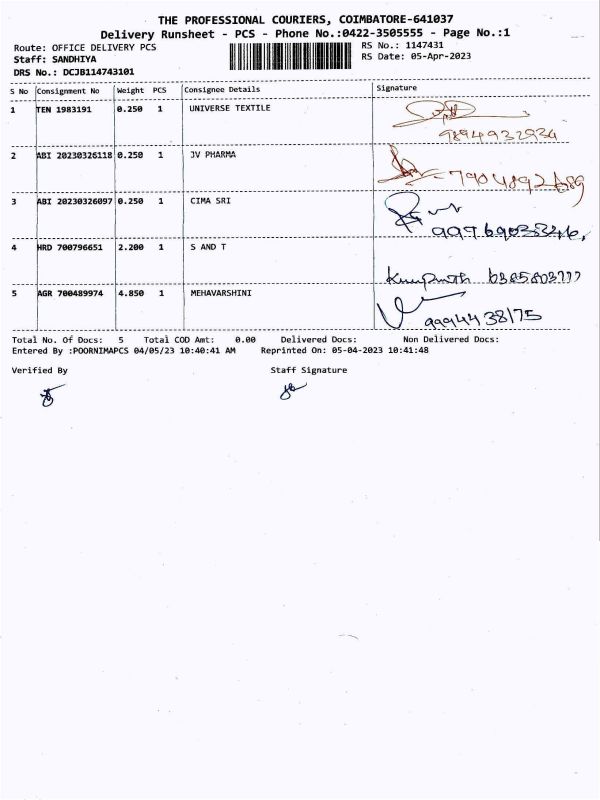 THE PROFESSIONAL COURIERS, COIMBATORE-641037
Delivery Runsheet - PCS - Phone No.:0422-3505555 - Page No.:1
Route: OFFICE DELIVERY PCS RS No.: 1147431
Staff: SANDHIYA RS Date: 05-Apr-2023
DRS No.: DCJB114743101
S No Consignment No Weight PCS Consignee Details Signature
1 TEN 1983191 0.250 1 UNIVERSE TEXTILE
9894932934
2 ABI 20230326118 0.250 1 JV PHARMA
3 ABI 20230326097 0.250 1 CIMA SRI
4 HRD 700796651 2.200 1 S AND T
6385803777
5 AGR 700489974 4.850 1 MEHAVARSHINI
9994438175
Total No. Of Docs: 5 Total COD Amt: 0.00 Delivered Docs: Non Delivered Docs:
Entered By :POORNIMAPCS 04/05/23 10:40:41 AM Reprinted On: 05-04-2023 10:41:48
Verified By Staff Signature